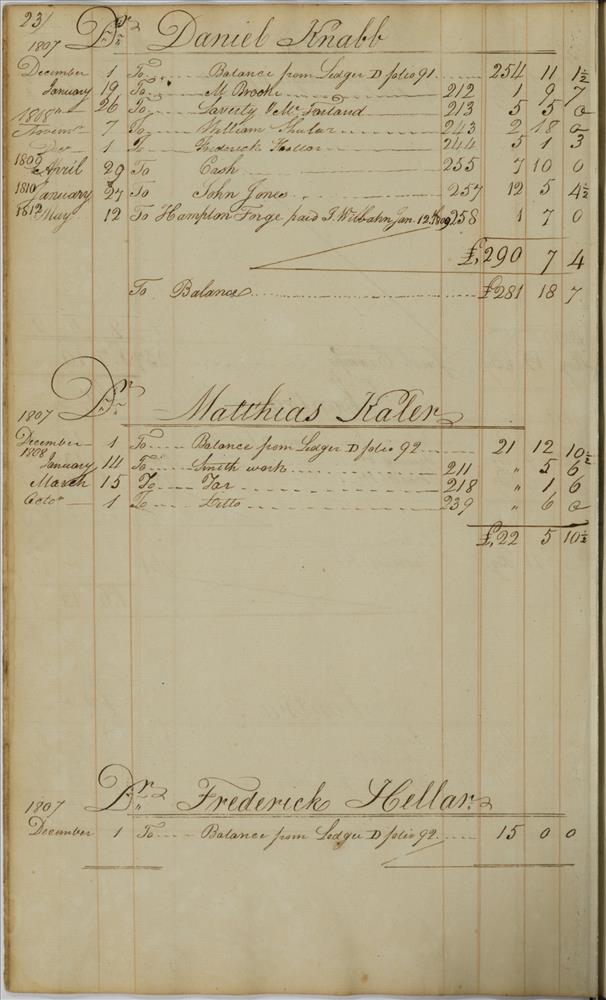 23
1807 Dr Daniel Knabb
December 1 To Balance from Ledger D folio 91 254 11 1½
January 19 To M Brooke 212 1 9 7
1808 " 26 To Laverty & McFarland 213 5 5 0
Novemr 7 To William Shuler 243 2 18 0
Der 1 To Frederick Hellar 244 5 1 3
1809 April 29 To Cash 255 7 10 0
1810 January 27 To John Jones 257 12 5 4½
1812 May 12 To Hampton Forge paid Jan. 12th 1809 258 1 7 0
£290 7 4
To Balance £281 18 7
1807 Dr Matthias Kaler
December 1 To Balance from Ledger D folio 92 21 12 10½
1808
January 14 To Smith work 211 " 5 6
March 15 To Tar 218 " 1 6
Octor 1 To Ditto 239 " 6 0
£22 5 10½
1807 Dr Frederick Hellar
December 1 To Balance from Ledger D folio 92 15 0 0